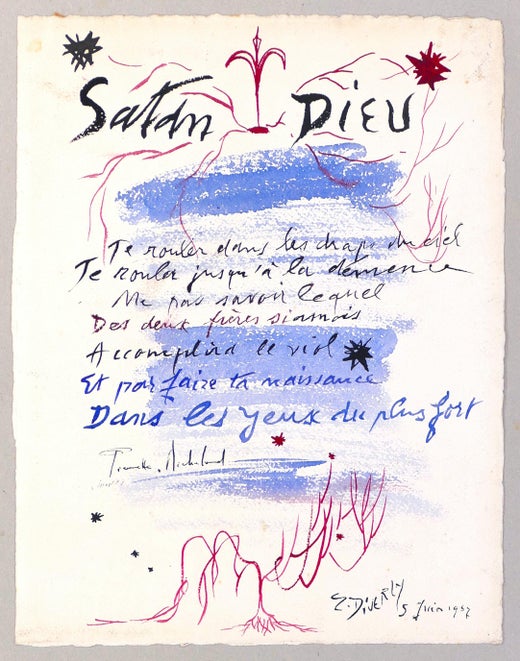 Satan Dieu
Te rouler dans les draps du ciel
Te rouler jusqu'à la démence
Ne pas savoir lequel
Des deux frères siamois
Accomplira le viol
Et parfaire ta naissance
Dans les yeux du plus fort
5 Juin 1957